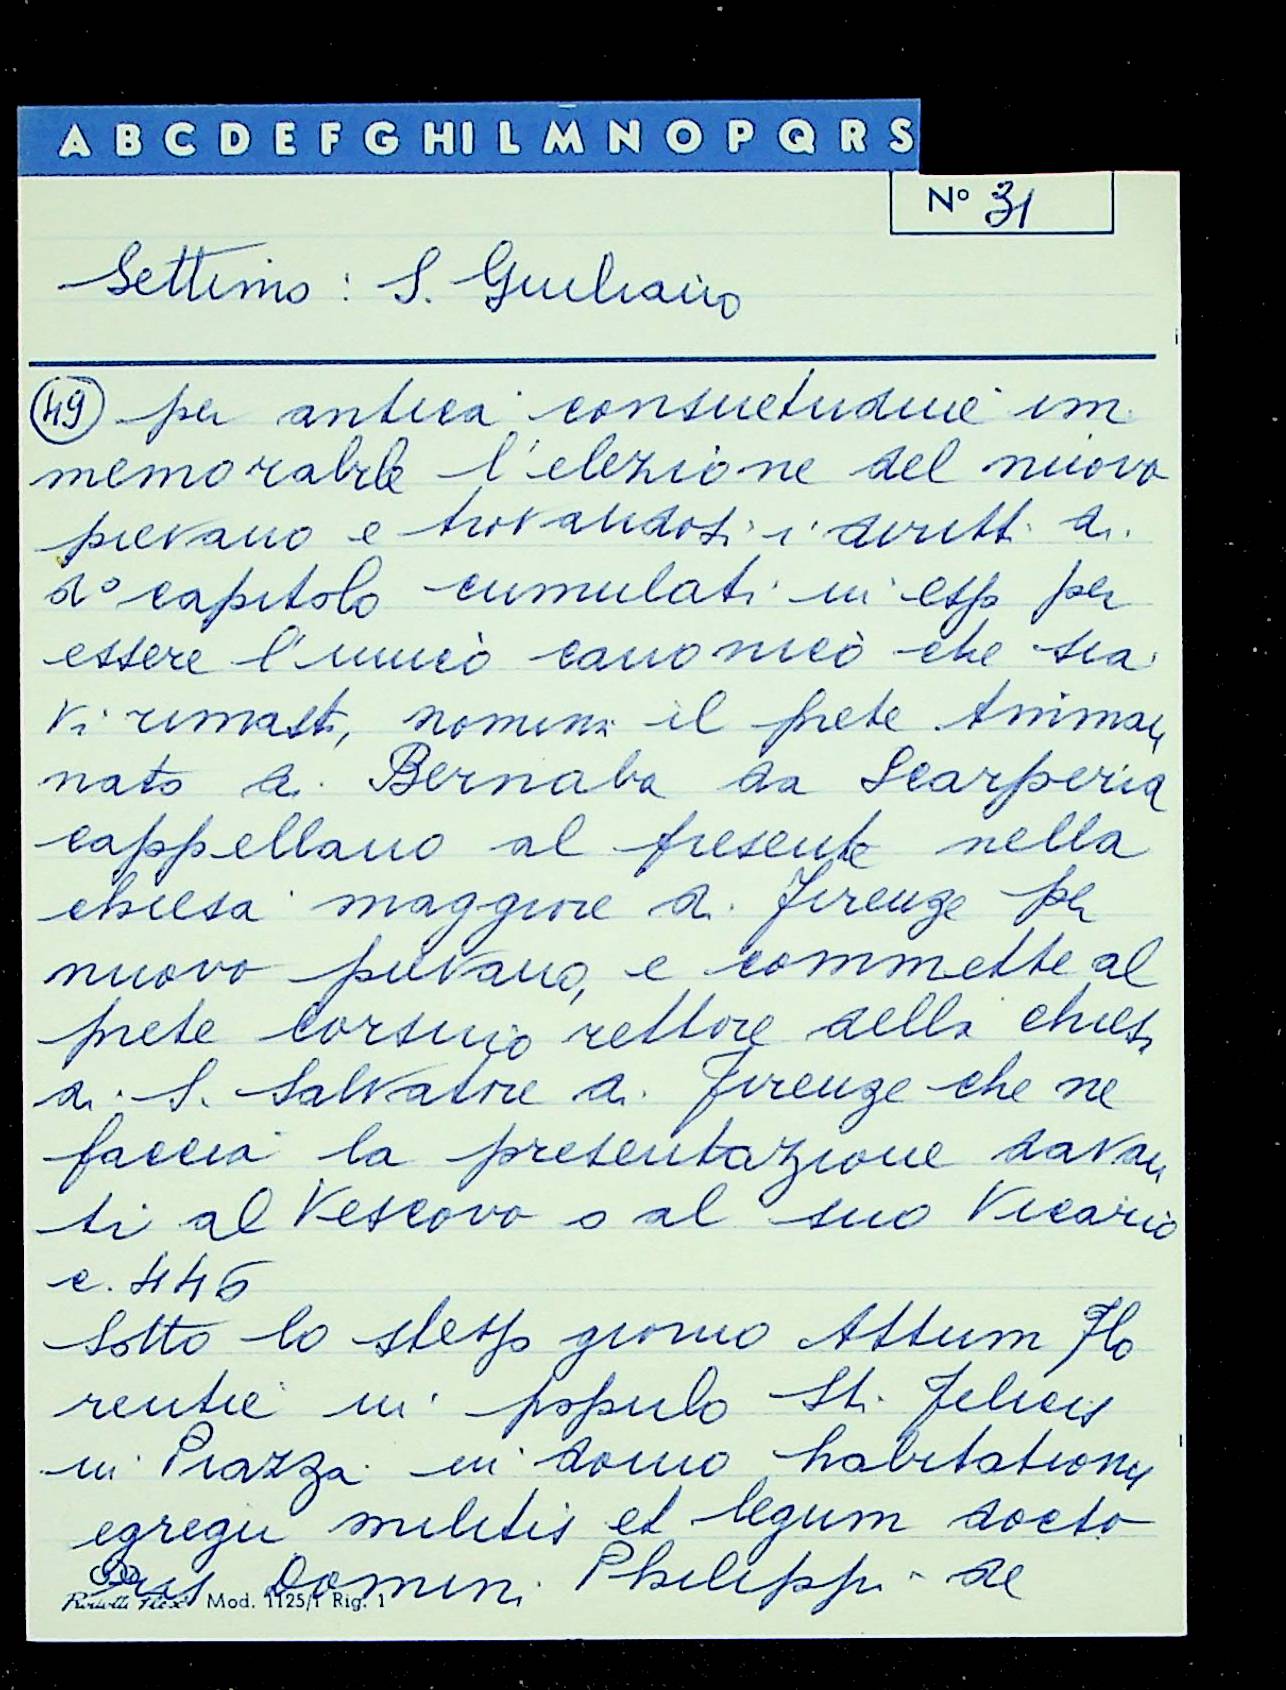 A B C D E F G H I L M N O P Q R S
Nº 31
Settimo : S. Giuliano
49 per antica consuetudine im
memorabile l'elezione del nuovo
pievano e trovandosi i diritti di
do capitolo cumulati in esso per
essere l'unico canonico che sia
vi rimasto, nomina il prete Amman
nato di Bernaba da Scarperia
cappellano al presente nella
chiesa maggiore di Firenze per
nuovo pievano, e commette al
prete Corsino rettore della chiesa
di S. Salvatore di Firenze che ne
faccia la presentazione davan
ti al Vescovo o al suo Vicario
c. 446
Sotto lo stesso giorno Actum Flo
rentie in populo Sti. Felicis
in Piazza in domo habitationis
egregii militis et legum docto
ris Domini Philippi de
Mod. 1125/1 Rig. 1